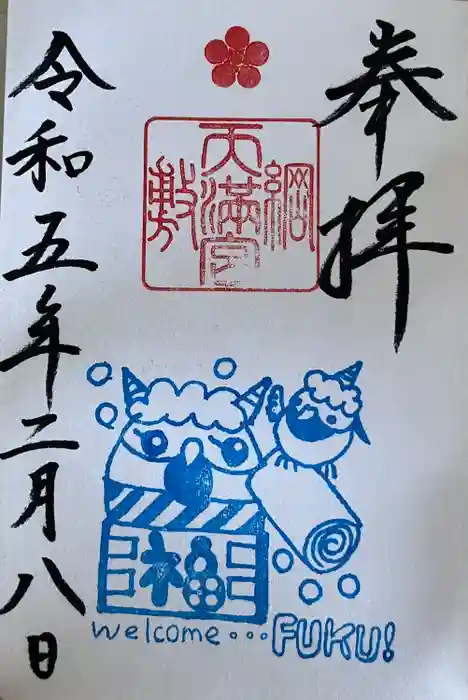 奉拝
綱敷天満宮
令和五年二月八日
福
welcome...FUKU!